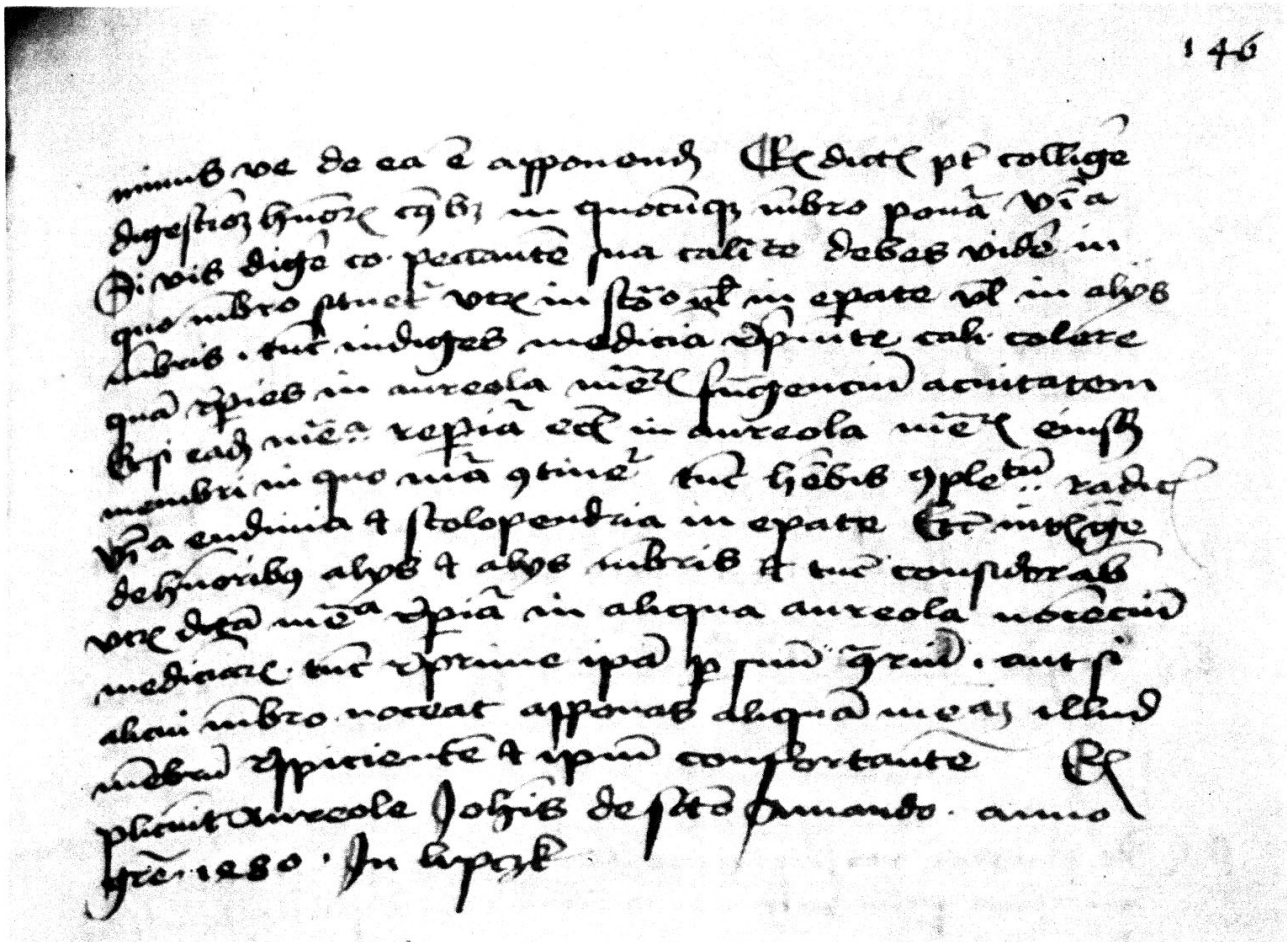 146
minus ve de ea ē apponend Ex dict pt colligē
digestioē hūor in quocūq mbro ponā vi a
Si vis digē co. peccantē sua calite debes vidē in
quo mbro situet utr in sto vl in epate vl in alys
mbris . tūc indiges medicīa rp̄mnte cali. colere
quā rpies in aureola mē fūgenciū acuitatem
Et si ead mē a reperiā ecī in aureola mē eiusd
membri in quo mā 9tinet tūc hēbis 9pletū radic
vi a endiuia & scolopendria in epate intige
de hūoribus alys & alys mbris & tūc considerab
utr dcā mē a rpiā in aliqua aureola nocēciū
mediciar . tūc rprime ipā p suū 9riū . aut si
alicui mbro noceat apponas aliquā meā illud
mēbrū rspicientē & ipm confortantē Ex
plicūit Aureole Johis de scto Amando . anno
grē . 1480 . In lipczk